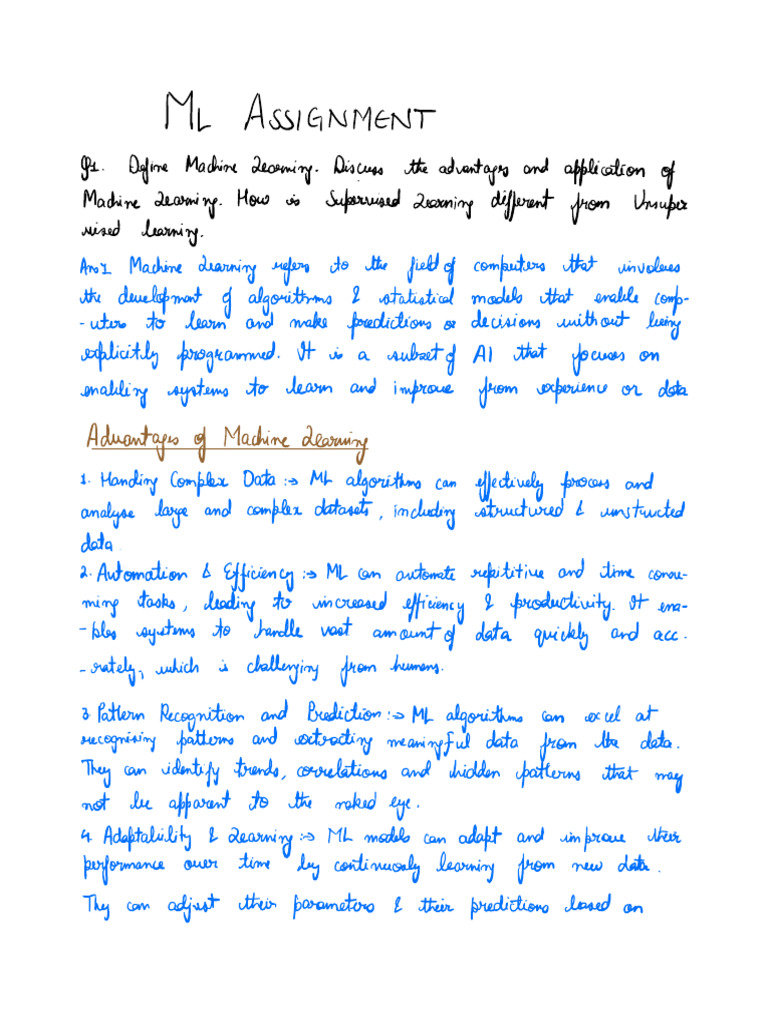 ML ASSIGNMENT
Q1. Define Machine Learning. Discuss the advantages and application of
Machine Learning. How is Supervised Learning different from Unsuper
vised learning.
Ans1 Machine Learning refers to the field of computers that involves
the development of algorithms & statistical models that enable comp-
-uters to learn and make predictions or decisions without being
explicitly programmed. It is a subset of AI that focuses on
enabling systems to learn and improve from experience or data
Advantages of Machine Learning
1. Handing Complex Data :→ ML algorithms can effectively process and
analyse large and complex datasets, including structured & unstructed
data.
2. Automation & Efficiency :→ ML can automate repititive and time consu-
ming tasks, leading to increased efficiency & productivity. It ena-
-bles systems to handle vast amount of data quickly and acc.
-rately, which is challenging from humans.
3. Pattern Recognition and Prediction :→ ML algorithms can excel at
recognising patterns and extracting meaningful data from the data.
They can identify trends, correlations and hidden patterns that may
not be apparent to the naked eye.
4. Adaptability & Learning :→ ML models can adapt and improve their
performance over time by continuosly learning from new data.
They can adjust their parameters & their predictions based on